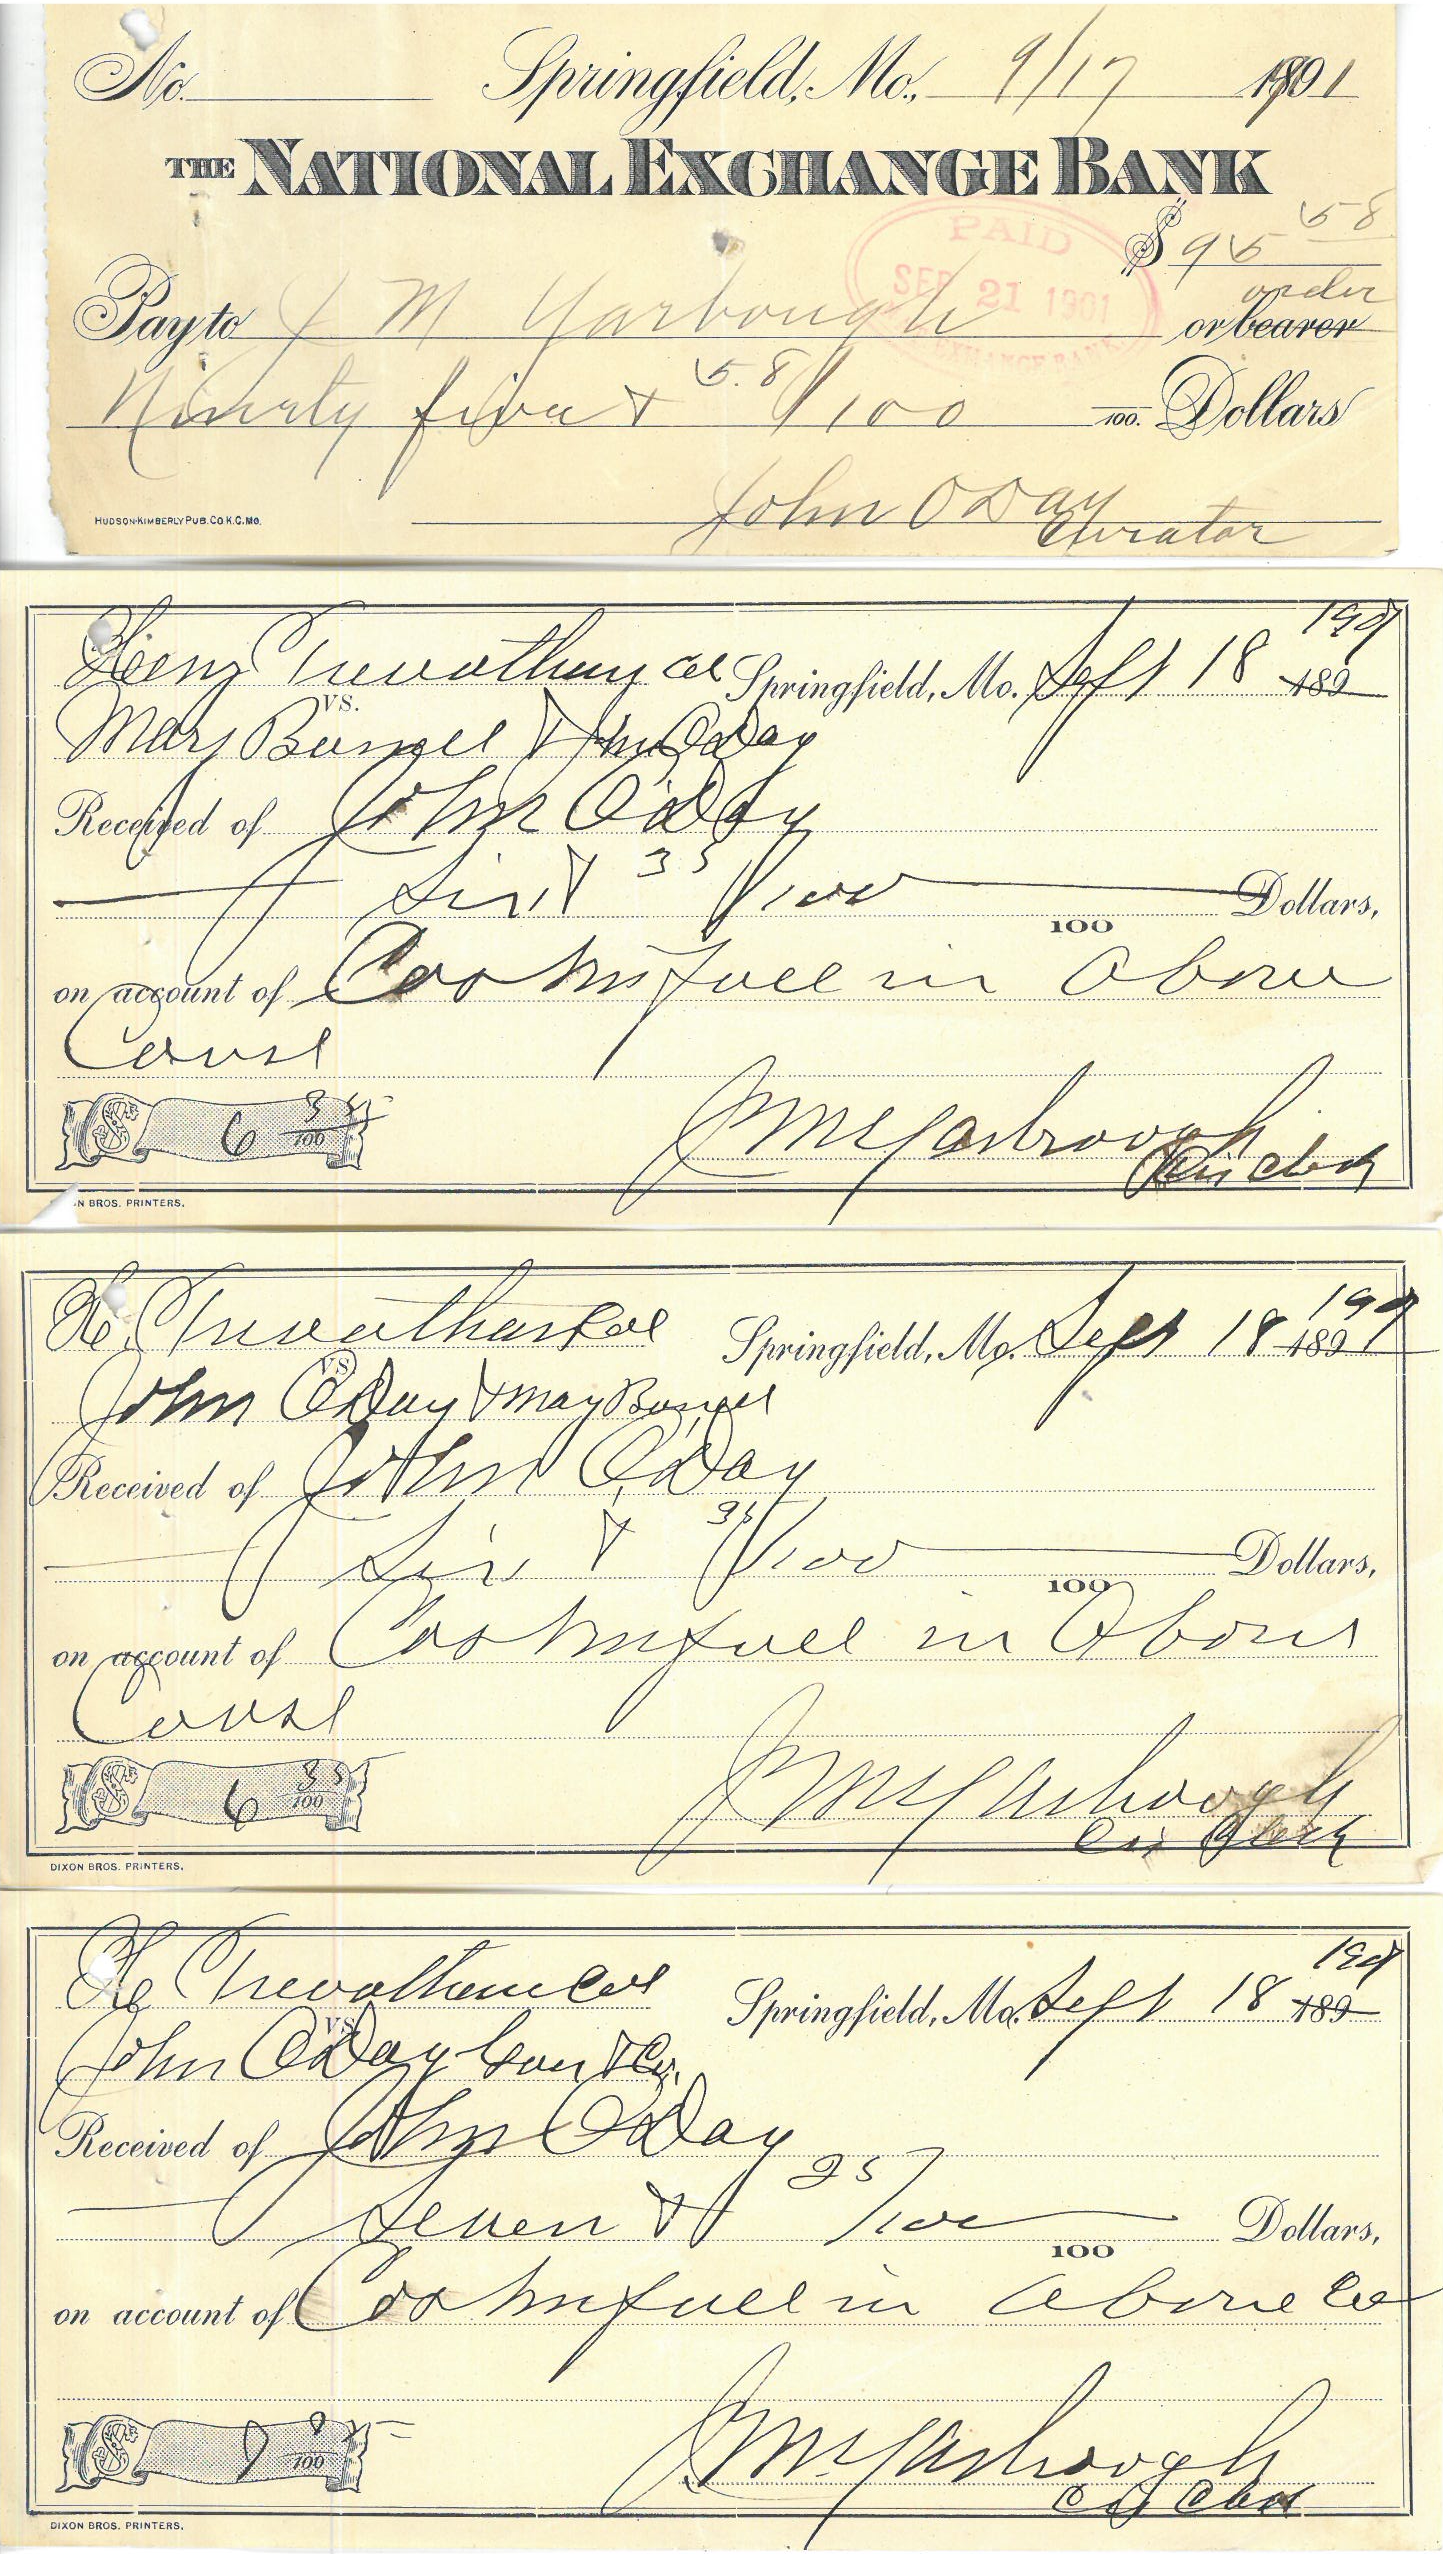 No. Springfield, Mo., 9/17 1901
THE NATIONAL EXCHANGE BANK
$ 95 58
PAID
SEP 21 1901
EXCHANGE BANK
Pay to J M Yarbough or bearer order
Ninety five & 58/100 100. Dollars
John O Day
Curator
HUDSON-KIMBERLY PUB. CO K.C. MO.
Trevathan Springfield, Mo. Sept 18 1901 189
VS.
Mary & Jno O'Day
Received of John O'Day
Six & 35/100 100 Dollars,
on account of Costs in full in Above
$ 6 35/100
J M Yarbrough
Cir Clerk
N BROS. PRINTERS.
Trevathan Springfield, Mo. Sept 18 1901 189
VS
John O'Day & Mary
Received of John O'Day
Six & 35/100 100 Dollars,
on account of Costs in full in Above
$ 6 35/100
J M Yarbrough
Cir Clerk
DIXON BROS. PRINTERS.
Trevathan Springfield, Mo. Sept 18 1901 189
VS
John O'Day
Received of John O'Day
Seven & 25/100 100 Dollars,
on account of Costs in full in above
$ 7 100
J M Yarbrough
Cir Clerk
DIXON BROS. PRINTERS.